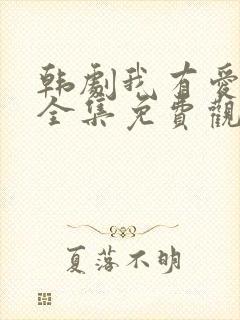 韩劇我有愛
全集免費觀
夏落不明